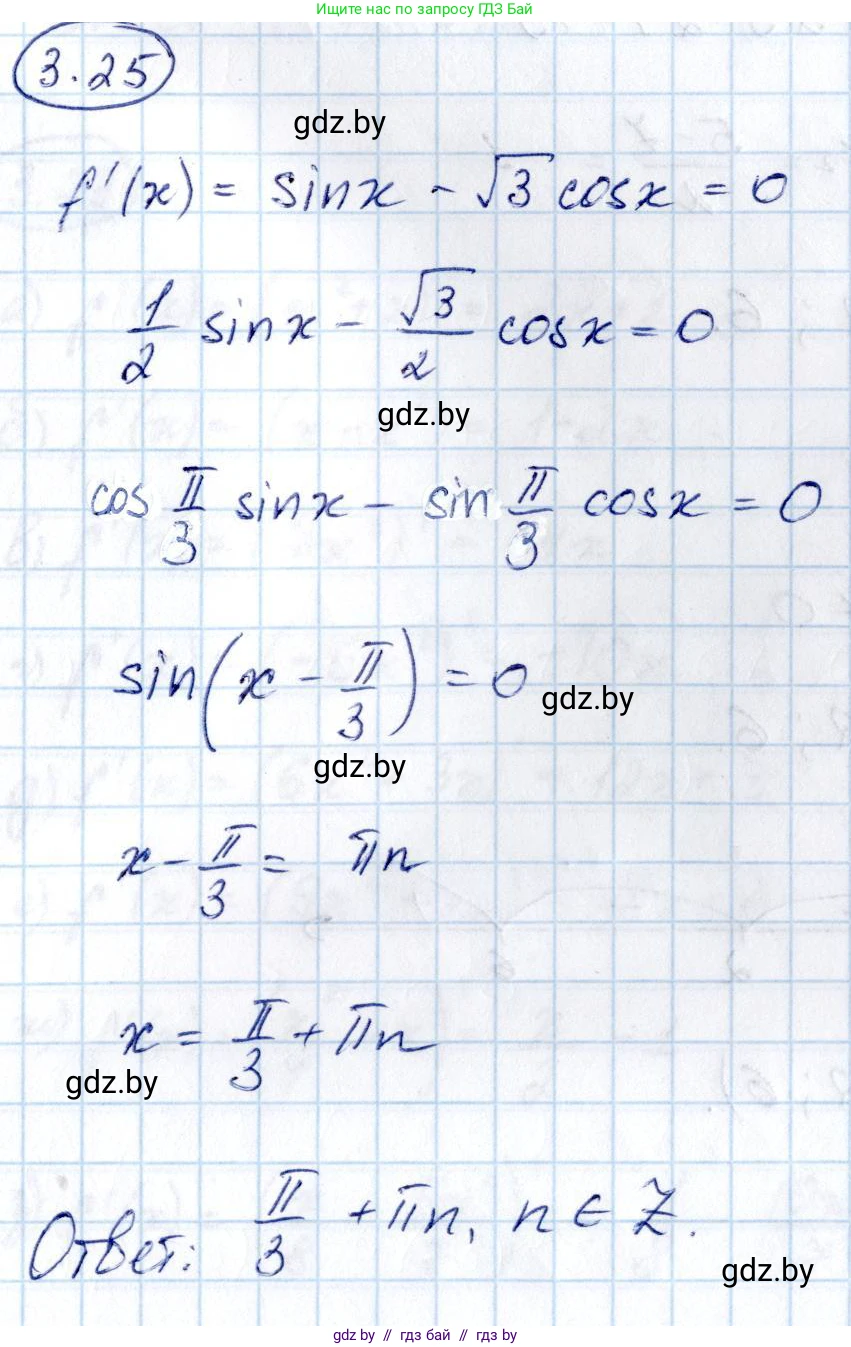 Ищите нас по запросу ГДЗ Бай
3.25
gdz.by
f'(x) = sinx - √3 cosx = 0
1/2 sinx - √3/2 cosx = 0
gdz.by
cos π/3 sinx - sin π/3 cosx = 0
sin(x - π/3) = 0
gdz.by
gdz.by
x - π/3 = πn
x = π/3 + πn
gdz.by
Ответ: π/3 + πn, n ∈ Z.
gdz.by
gdz.by // гдз бай // гдз by